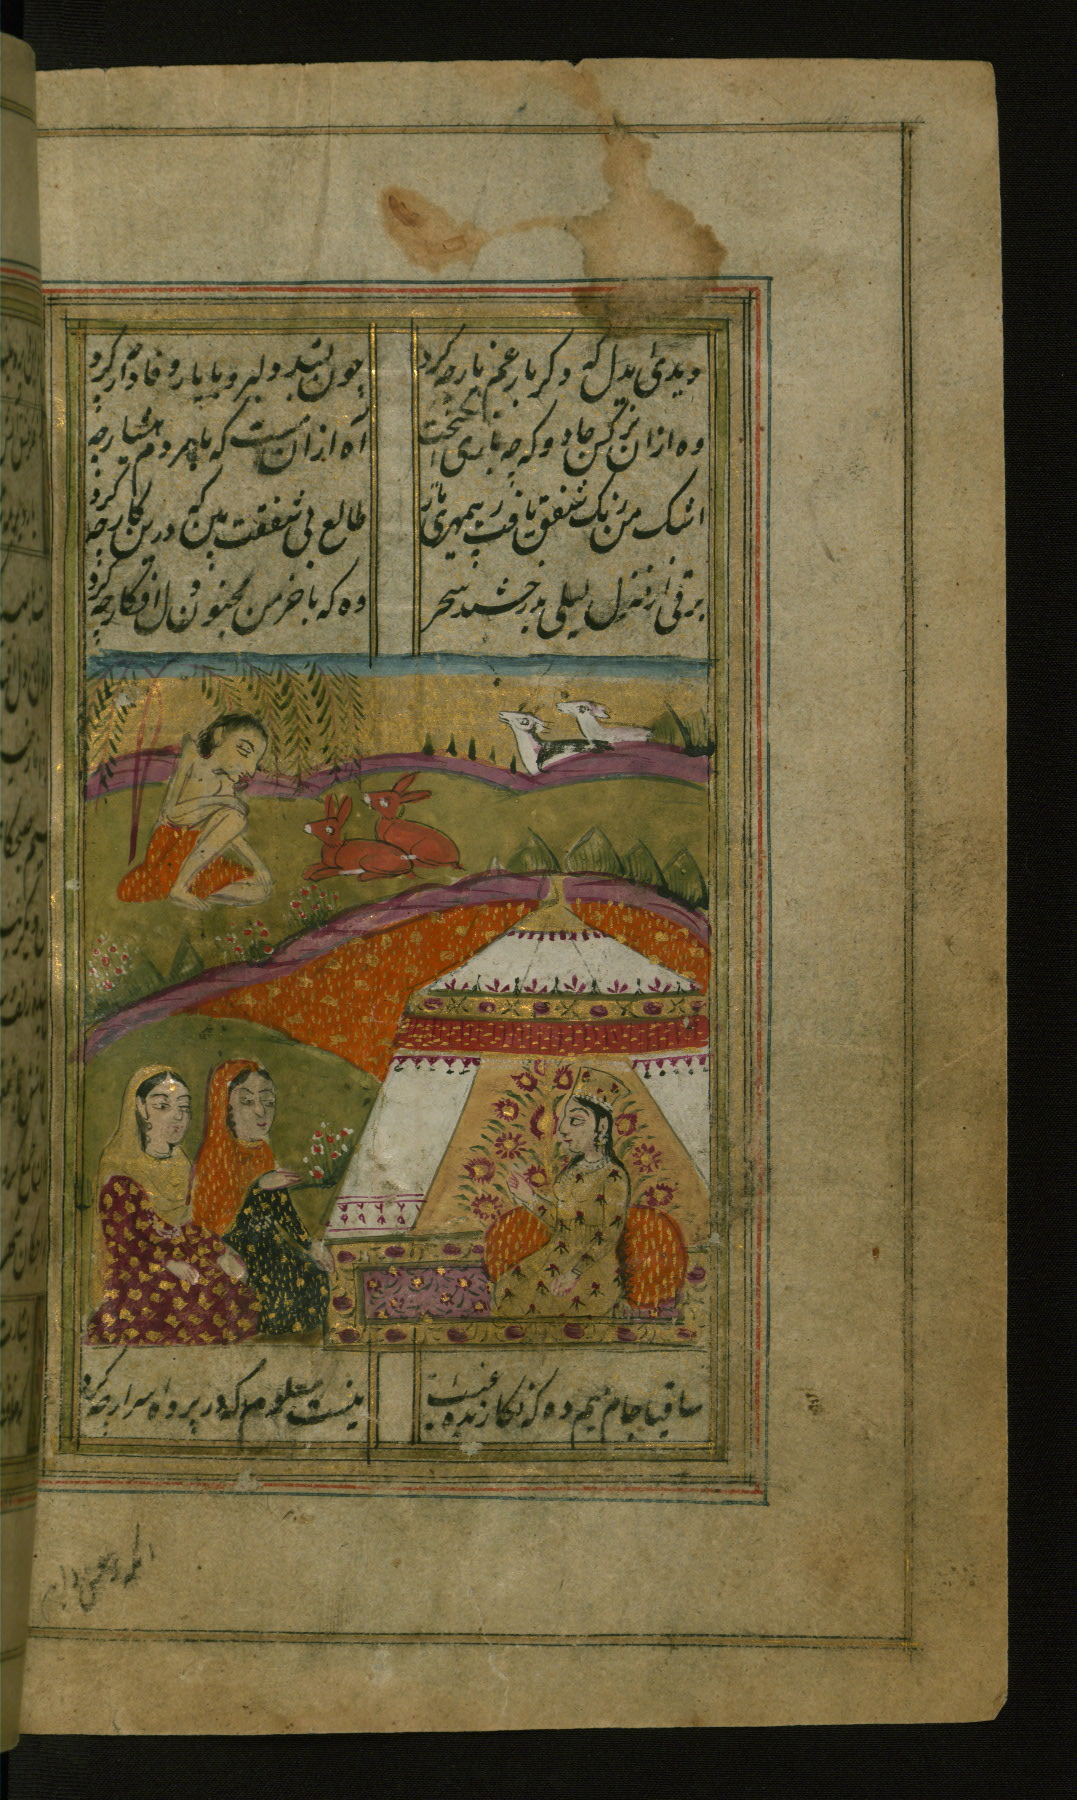 دیدی ایدل که دکر بار غم یار چه کرد
چون بشد دلبر و با یار وفادار چه کرد
وه ازان نرکس جادو که چه بازی انکیخت
اه ازان مست که با مردم هشیار چه کرد
اشک من رنک شفق یافت ز بیمهری یار
طالع بی شفقت بین که درین کار چه کرد
برقی از منزل لیلی بدرخشید سحر
وه که با خرمن مجنون دل افکار چه کرد
ساقیا جام میم ده که نکارنده غیب
نیست معلوم که در پرده اسرار چه کرد